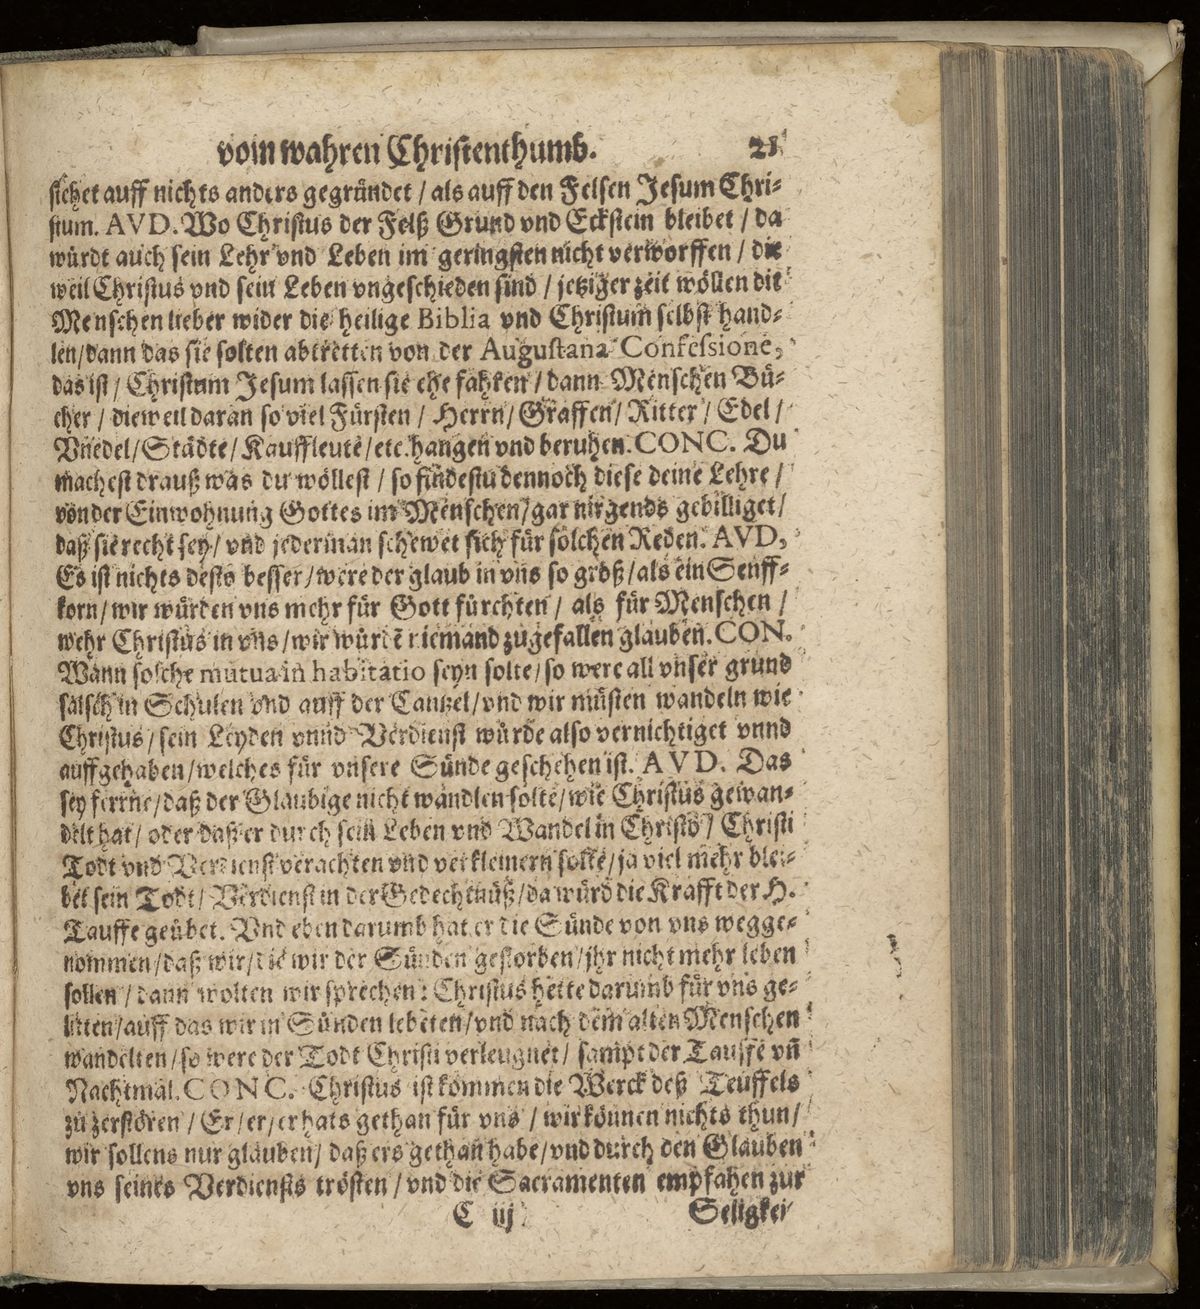 vom wahren Christenthumb. 21
stehet auff nichts anders gegründet / als auff den Felsen Jesum Chri-
stum. AVD. Wo Christus der Felß Grund vnd Eckstein bleibet / da
würdt auch sein Lehr vnd Leben im geringsten nicht verworffen / die
weil Christus vnd sein Leben vngeschieden sind / jetziger zeit wöllen die
Menschen lieber wider die heilige Biblia vnd Christum selbst hand-
len/dann das sie solten abtretten von der Augustana Confessione,
das ist / Christum Jesum lassen sie ehe fahren / dann Menschen Bü-
cher / dieweil daran so viel Fürsten / Herrn/ Graffen/ Ritter / Edel /
Vnedel/ Städte/ Kauffleute/etc. hangen vnd beruhen. CONC. Du
machest drauß was du wöllest / so findestu dennoch diese deine Lehre /
von der Einwohnung Gottes im Menschen/gar nirgends gebilliget/
daß sie recht sey/ vnd jederman schewet sich für solchen Reden. AVD,
Es ist nichts desto besser/were der glaub in vns so groß/als ein Senff-
korn/wir würden vns mehr für Gott fürchten / als für Menschen /
wehr Christus in vns/wir würdē niemand zugefallen glauben. CON.
Wann solche mutua in habitatio seyn solte/so were all vnser grund
falsch in Schulen vnd auff der Cantzel/vnd wir müsten wandeln wie
Christus/sein Leyden vnnd Verdienst würde also vernichtiget vnnd
auffgehaben/welches für vnsere Sünde geschehen ist. AVD. Das
sey ferrne/daß der Glaubige nicht wandlen solte/wie Christus gewan-
delt hat/ oder daß er durch sein Leben vnd Wandel in Christo/ Christi
Todt vnd Verdienst verachten vnd verkleinern solte/ja viel mehr blei-
bet sein Todt/ Verdienst in der Gedechtnüß/da würd die Krafft der H.
Tauffe geübet. Vnd eben darumb hat er die Sünde von vns wegge-
nommen/daß wir/die wir der Sünden gestorben/jhr nicht mehr leben
sollen / dann wolten wir sprechen: Christus hette darumb für vns ge-
litten/auff das wir in Sünden lebeten/vnd nach dem alten Menschen
wandelten/so were der Todt Christi verleugnet/ sampt der Tauffe vñ
Nachtmal. CONC. Christus ist kommen die Werck deß Teuffels
zu zerstören / Er/er/er hats gethan für vns / wir können nichts thun/
wir sollens nur glauben/ daß ers gethan habe/vnd durch den Glauben
vns seines Verdiensts trösten / vnd die Sacramenten empfahen zur
C iij Seligkei